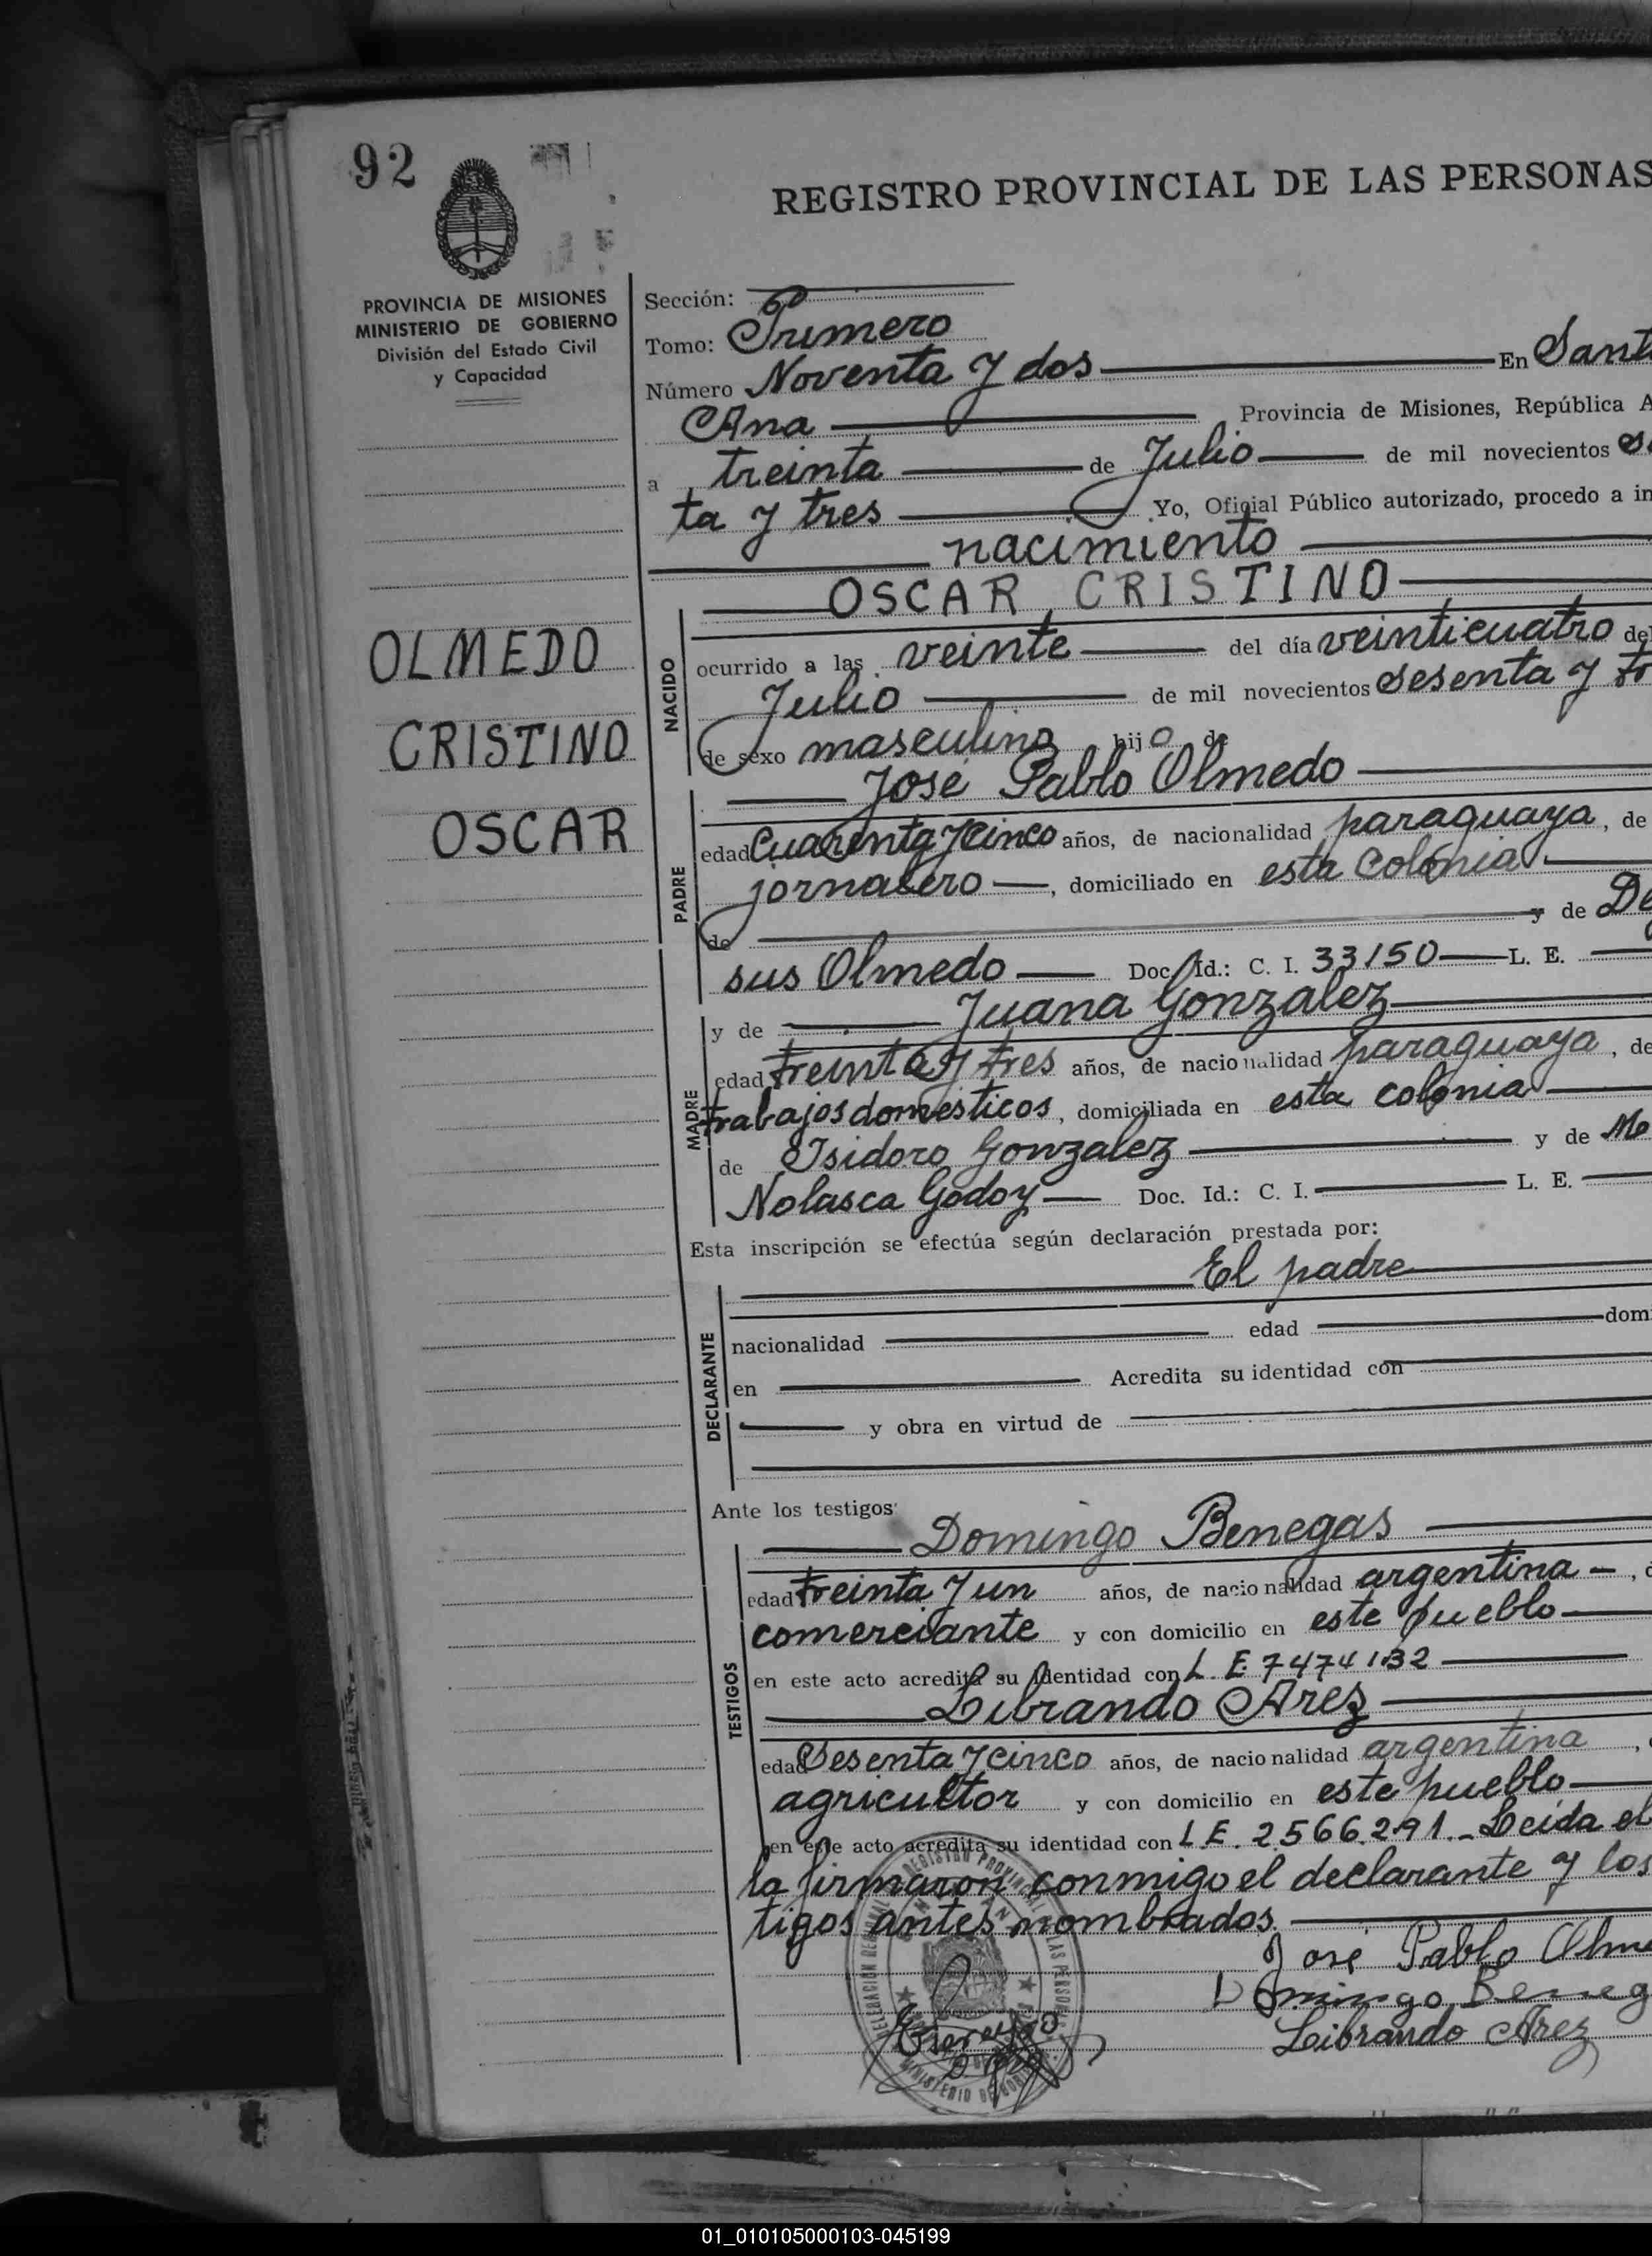 92
REGISTRO PROVINCIAL DE LAS PERSONAS
PROVINCIA DE MISIONES
MINISTERIO DE GOBIERNO
División del Estado Civil
y Capacidad
Sección:
Tomo: Primero
Número Noventa y dos En Sant
Ana Provincia de Misiones, República A
a treinta de Julio de mil novecientos s
ta y tres Yo, Oficial Público autorizado, procedo a in
nacimiento
OSCAR CRISTINO
OLMEDO
CRISTINO
OSCAR
NACIDO
ocurrido a las veinte del día veinticuatro de
Julio de mil novecientos sesenta y tr
de sexo masculino hijo de
José Pablo Olmedo
PADRE
edad Cuarenta y cinco años, de nacionalidad paraguaya, de
jornalero, domiciliado en esta colonia
de y de De
sus Olmedo Doc. Id.: C. I. 33150 L. E.
y de Juana Gonzalez
MADRE
edad treinta y tres años, de nacionalidad paraguaya, de
trabajos domésticos, domiciliada en esta colonia
de Isidoro Gonzalez y de Me
Nolasca Godoy Doc. Id.: C. I. L. E.
Esta inscripción se efectúa según declaración prestada por:
El padre
DECLARANTE
nacionalidad edad dom
en Acredita su identidad con
y obra en virtud de
Ante los testigos:
Domingo Benegas
TESTIGOS
edad treinta y un años, de nacionalidad argentina,
comerciante y con domicilio en este pueblo
en este acto acredita su identidad con L. E. 7474132
Librando Arez
edad Sesenta y cinco años, de nacionalidad argentina,
agricultor y con domicilio en este pueblo
en este acto acredita su identidad con L E. 2566.291.- Leida el
la firmaron conmigo el declarante y los
tigos antes nombrados.
José Pablo Olme
Domingo Beneg
Librando Arez
01_010105000103-045199